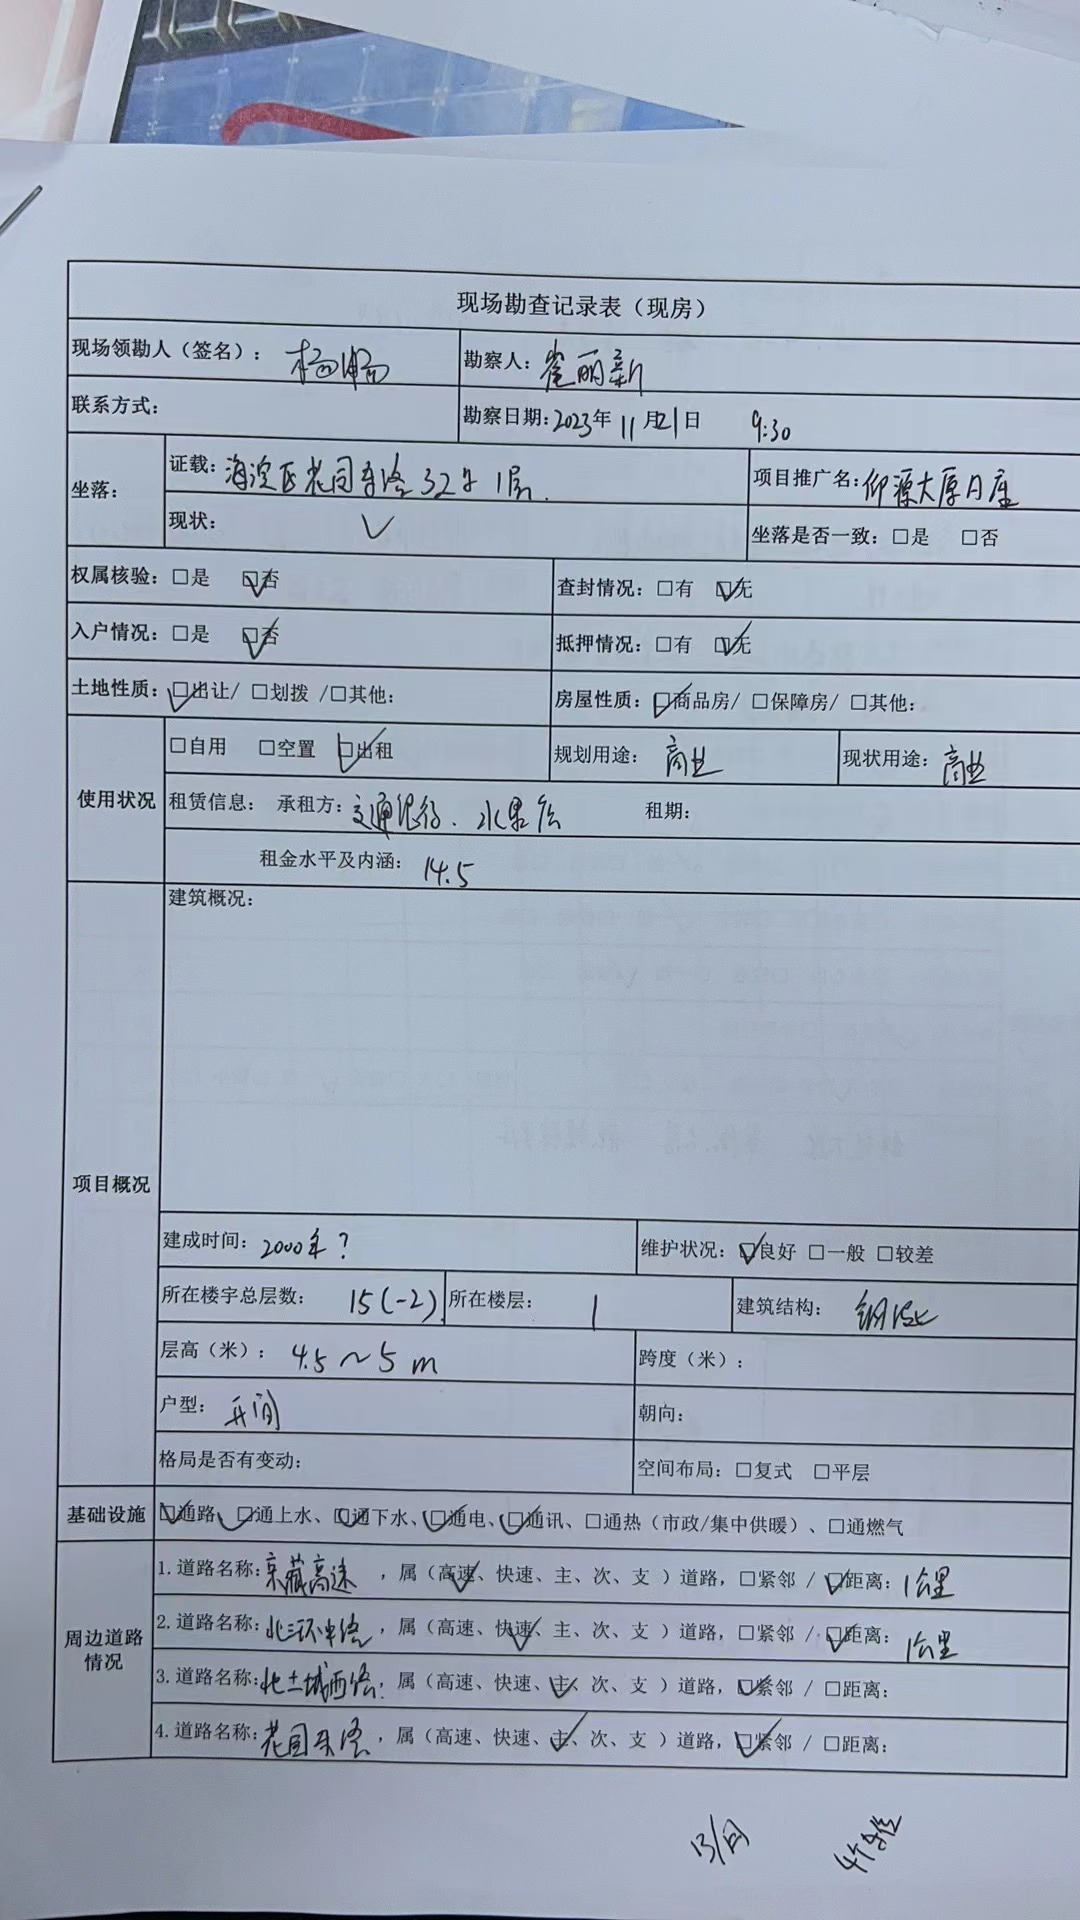 现场勘查记录表（现房）
现场领勘人（签名）：杨畅 勘察人：崔丽新
联系方式： 勘察日期：2023年11月21日 9:30
坐落： 证载：海淀区花园东路32号1层. 项目推广名：
现状：✓ 坐落是否一致：□是 □否
权属核验：□是 ☑否 查封情况：□有 ☑无
入户情况：□是 ☑否 抵押情况：□有 ☑无
土地性质：☑出让/ □划拨 /□其他： 房屋性质：☑商品房/ □保障房/ □其他：
使用状况 □自用 □空置 ☑出租 规划用途：商业 现状用途：商业
租赁信息： 承租方：交通银行、水果店 租期：
租金水平及内涵：14.5
项目概况 建筑概况：
建成时间：2000年？ 维护状况：☑良好 □一般 □较差
所在楼宇总层数：15(-2) 所在楼层：1 建筑结构：钢混
层高（米）：4.5～5m 跨度（米）：
户型：开间 朝向：
格局是否有变动： 空间布局：□复式 □平层
基础设施 ☑通路、☑通上水、☑通下水、☑通电、☑通讯、□通热（市政/集中供暖）、□通燃气
周边道路情况 1.道路名称：京藏高速，属（高速✓、快速、主、次、支）道路，□紧邻 / ☑距离：1公里
2.道路名称：北三环中路，属（高速、快速✓、主、次、支）道路，□紧邻 / ☑距离：1公里
3.道路名称：北土城西路，属（高速、快速、主✓、次、支）道路，☑紧邻 / □距离：
4.道路名称：花园东路，属（高速、快速、主✓、次、支）道路，☑紧邻 / □距离：